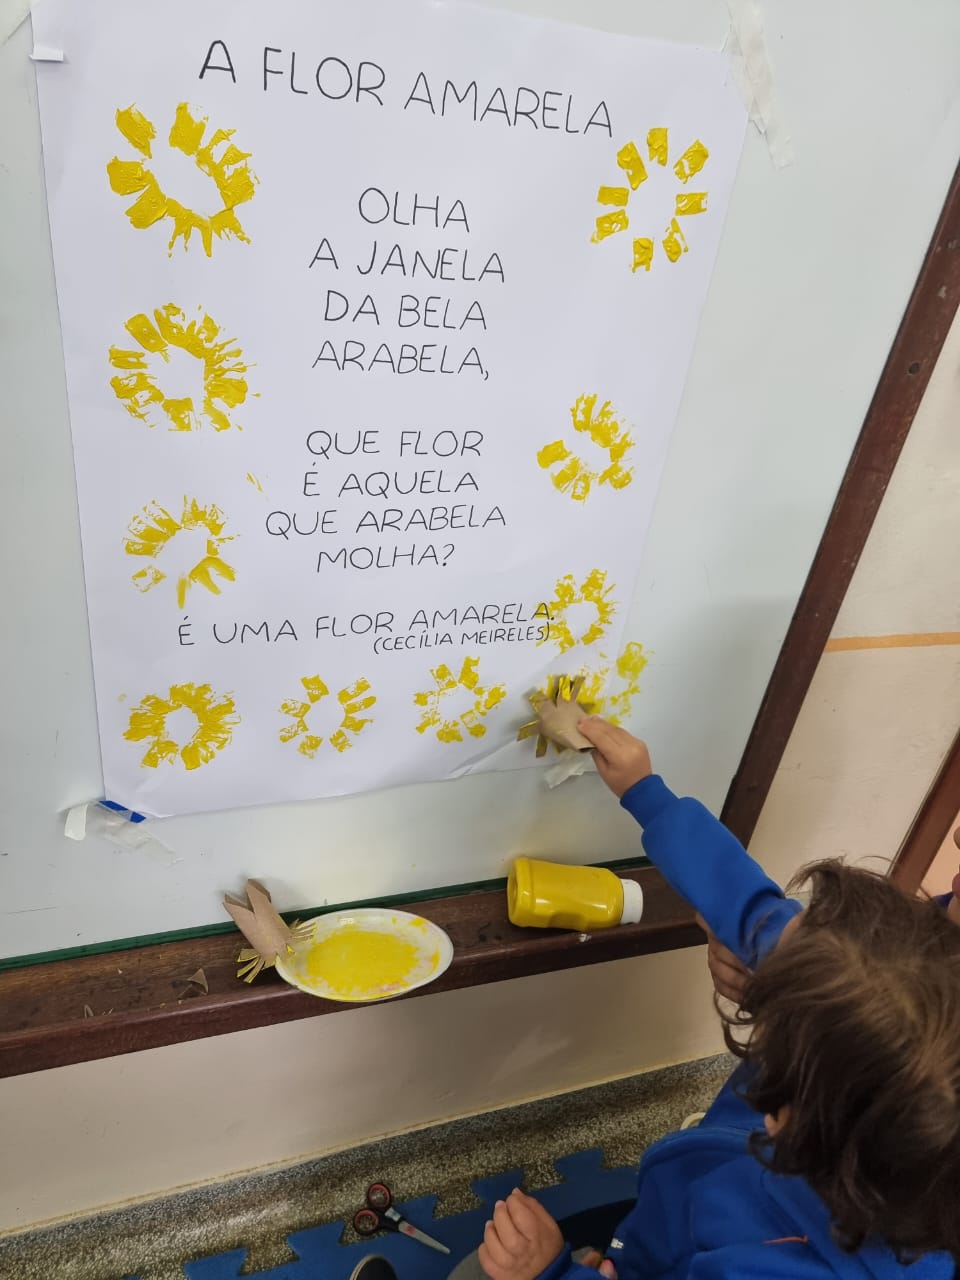 A FLOR AMARELA
OLHA
A JANELA
DA BELA
ARABELA,
QUE FLOR
É AQUELA
QUE ARABELA
MOLHA?
É UMA FLOR AMARELA.
(CECÍLIA MEIRELES)